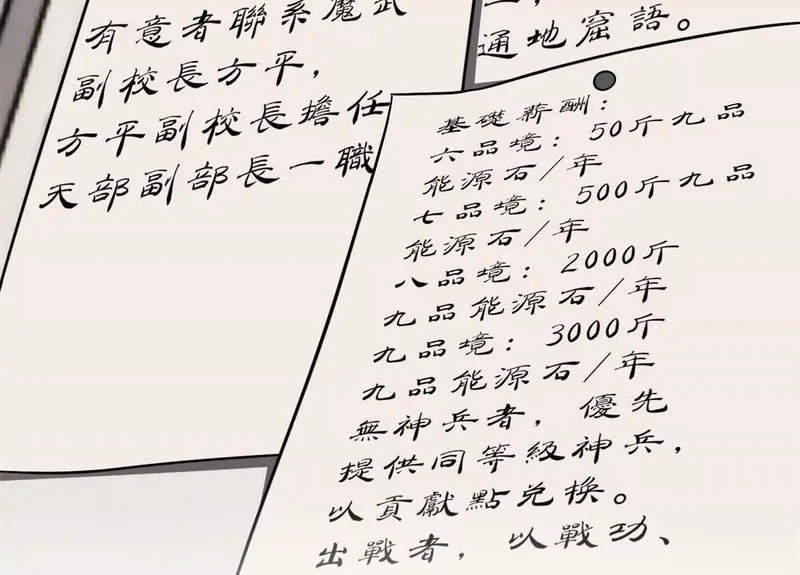 有意者聯系魔武
副校長方平，
方平副校長擔任
天部副部長一職
通地窟語。
基礎薪酬：
六品境：50斤九品
能源石/年
七品境：500斤九品
能源石/年
八品境：2000斤
九品能源石/年
九品境：3000斤
九品能源石/年
無神兵者，優先
提供同等級神兵，
以貢獻點兌換。
出戰者，以戰功、